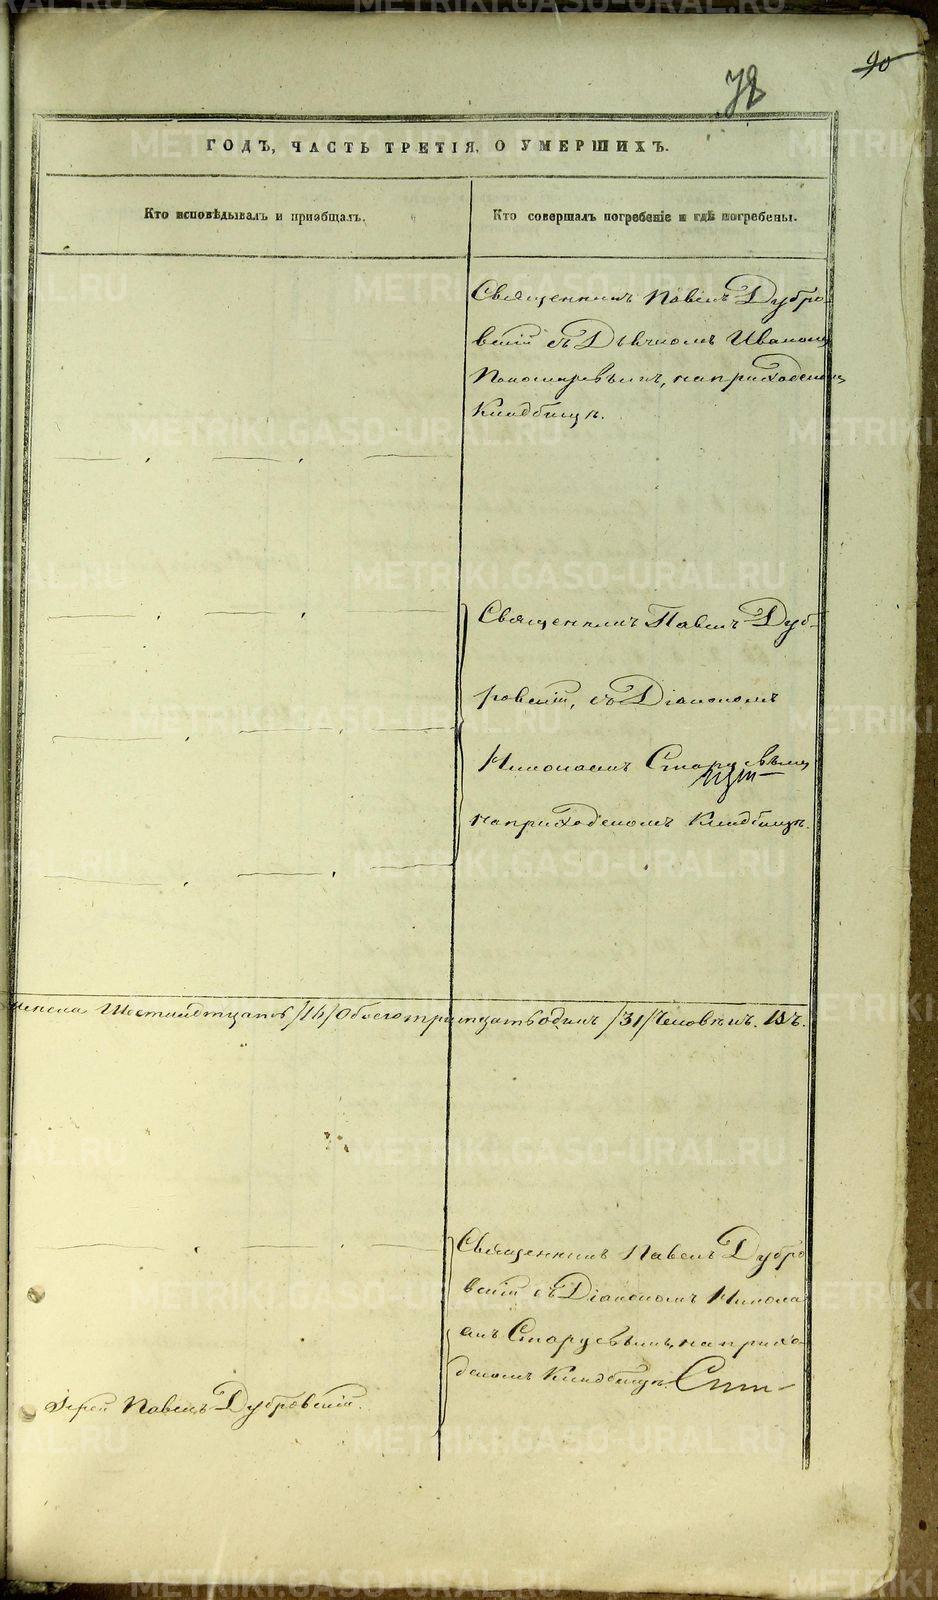 90
78
ГОДЪ, ЧАСТЬ ТРЕТІЯ, О УМЕРШИХЪ.
Кто исповѣдывалъ и пріобщалъ.
Кто совершалъ погребеніе и гдѣ погребены.
Священникъ Павелъ Дубро-
вскій съ Дьячкомъ Иваномъ
Пономаревымъ, на приходскомъ
Кладбищѣ.
Священникъ Павелъ Дуб-
ровскій, съ Діакономъ
Николаемъ
на приходскомъ Кладбищѣ.
Шестнадцать /16/ Обоего тридцать одинъ /31/ Человѣкъ.
Священникъ Павелъ Дубро
вскій съ Діакономъ Никола
емъ на прихо
дскомъ Кладбищѣ.
Іерей Павелъ Дубровскій.
METRIKI.GASO-URAL.RU